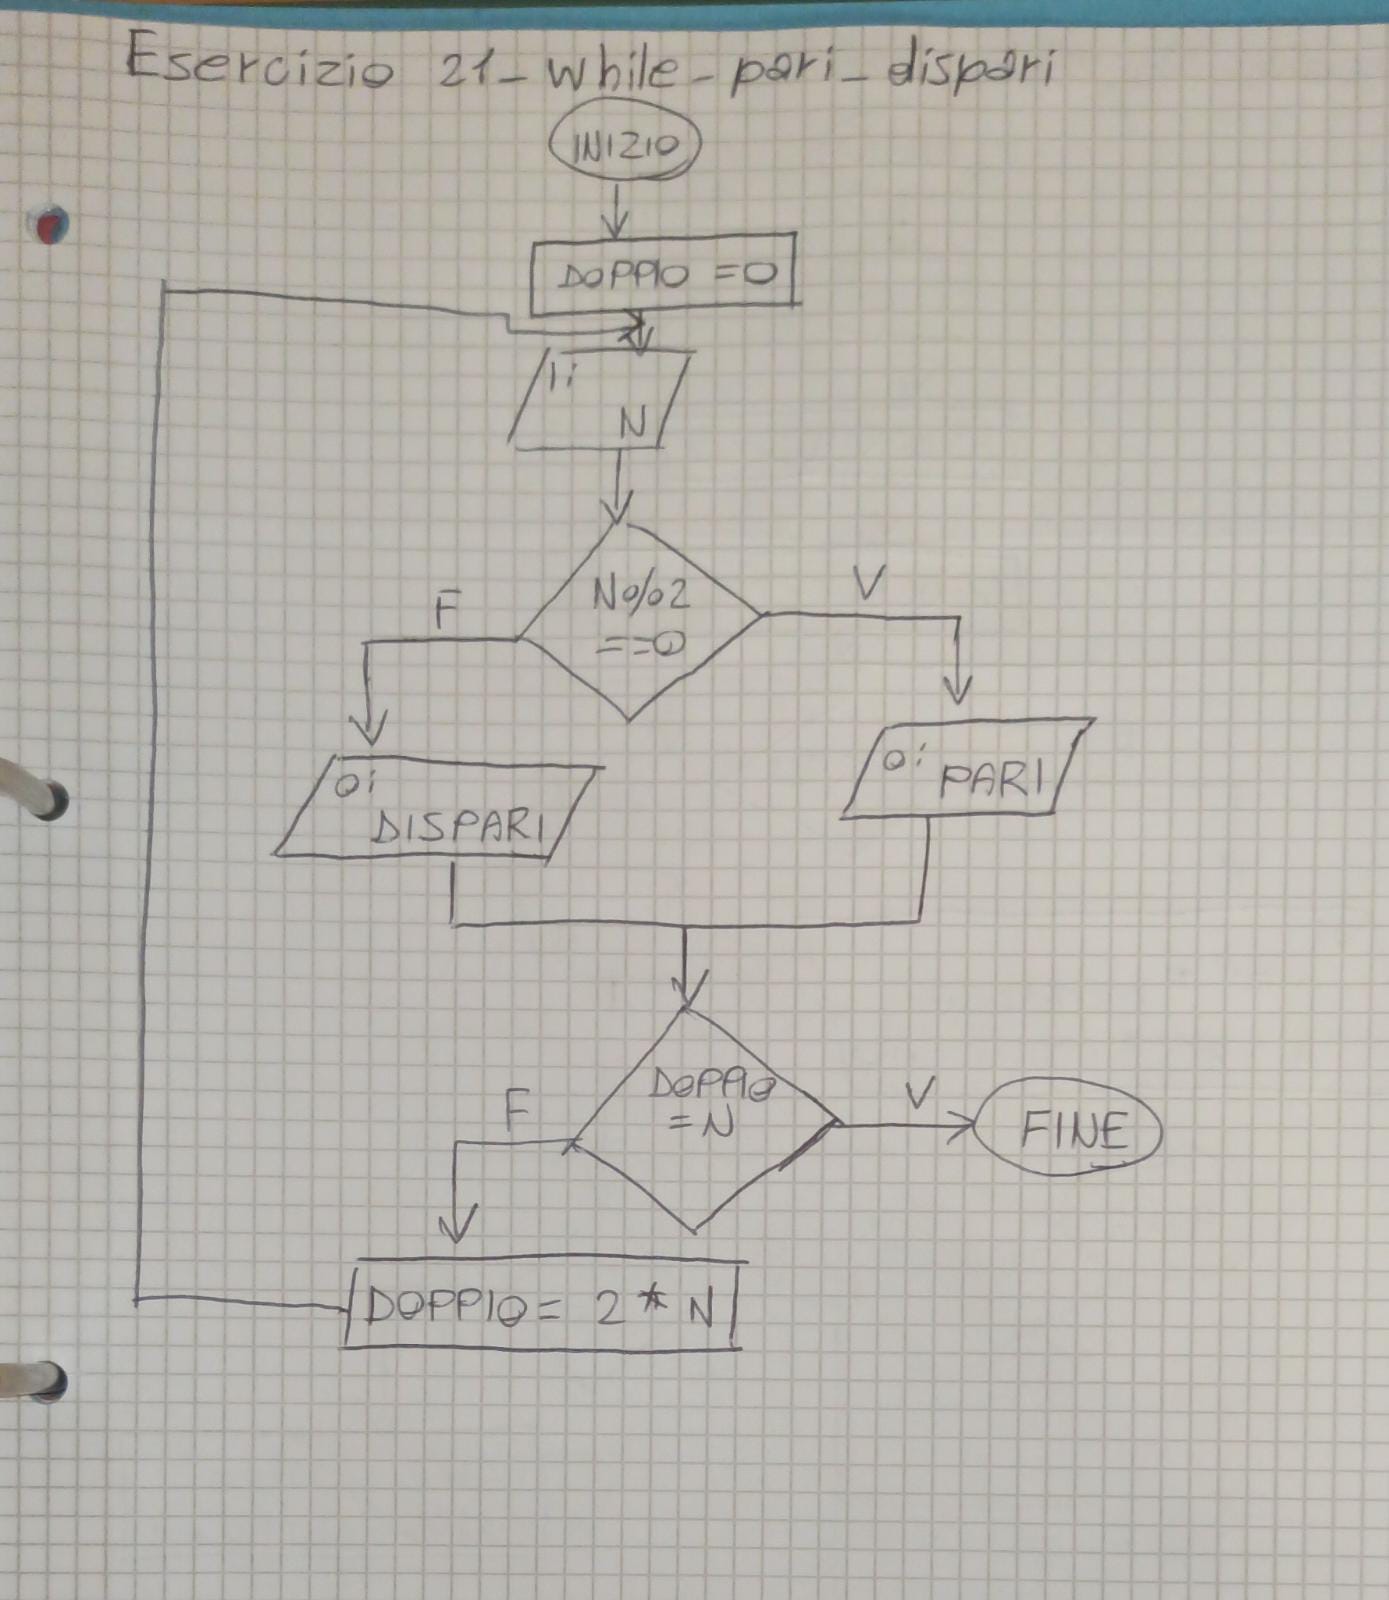 Esercizio 21_while_pari_dispari
INIZIO
DOPPIO =0
I:
N
N%2
==0
F
V
O:
DISPARI
O:
PARI
DOPPIO
=N
F
V
FINE
DOPPIO= 2 * N